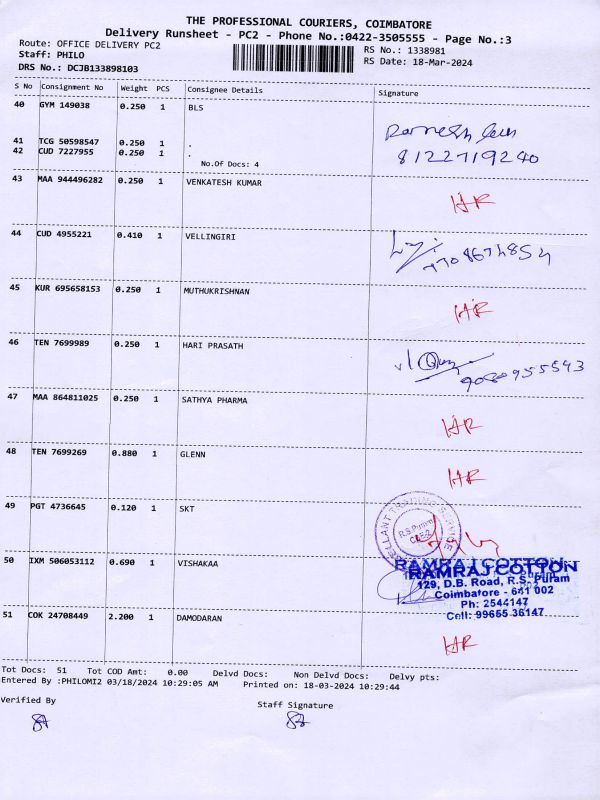 THE PROFESSIONAL COURIERS, COIMBATORE
Delivery Runsheet - PC2 - Phone No.:0422-3505555 - Page No.:3
Route: OFFICE DELIVERY PC2 RS No.: 1338981
Staff: PHILO RS Date: 18-Mar-2024
DRS No.: DCJB133898103
S No Consignment No Weight PCS Consignee Details Signature
40 GYM 149038 0.250 1 BLS
41 TCG 50598547 0.250 1 .
42 CUD 7227955 0.250 1 . 8122719240
No.Of Docs: 4
43 MAA 944496282 0.250 1 VENKATESH KUMAR HR
44 CUD 4955221 0.410 1 VELLINGIRI
45 KUR 695658153 0.250 1 MUTHUKRISHNAN HR
46 TEN 7699989 0.250 1 HARI PRASATH
47 MAA 864811025 0.250 1 SATHYA PHARMA HR
48 TEN 7699269 0.880 1 GLENN HR
49 PGT 4736645 0.120 1 SKT
R.S. Puram
CBE-2
50 IXM 506053112 0.690 1 VISHAKAA
RAMRAJ COTTON
129, D.B. Road, R.S. Puram
Coimbatore - 641 002
Ph: 2544147
Cell: 99655 36147
51 COK 24708449 2.200 1 DAMODARAN HR
Tot Docs: 51 Tot COD Amt: 0.00 Delvd Docs: Non Delvd Docs: Delvy pts:
Entered By :PHILOMI2 03/18/2024 10:29:05 AM Printed on: 18-03-2024 10:29:44
Verified By Staff Signature